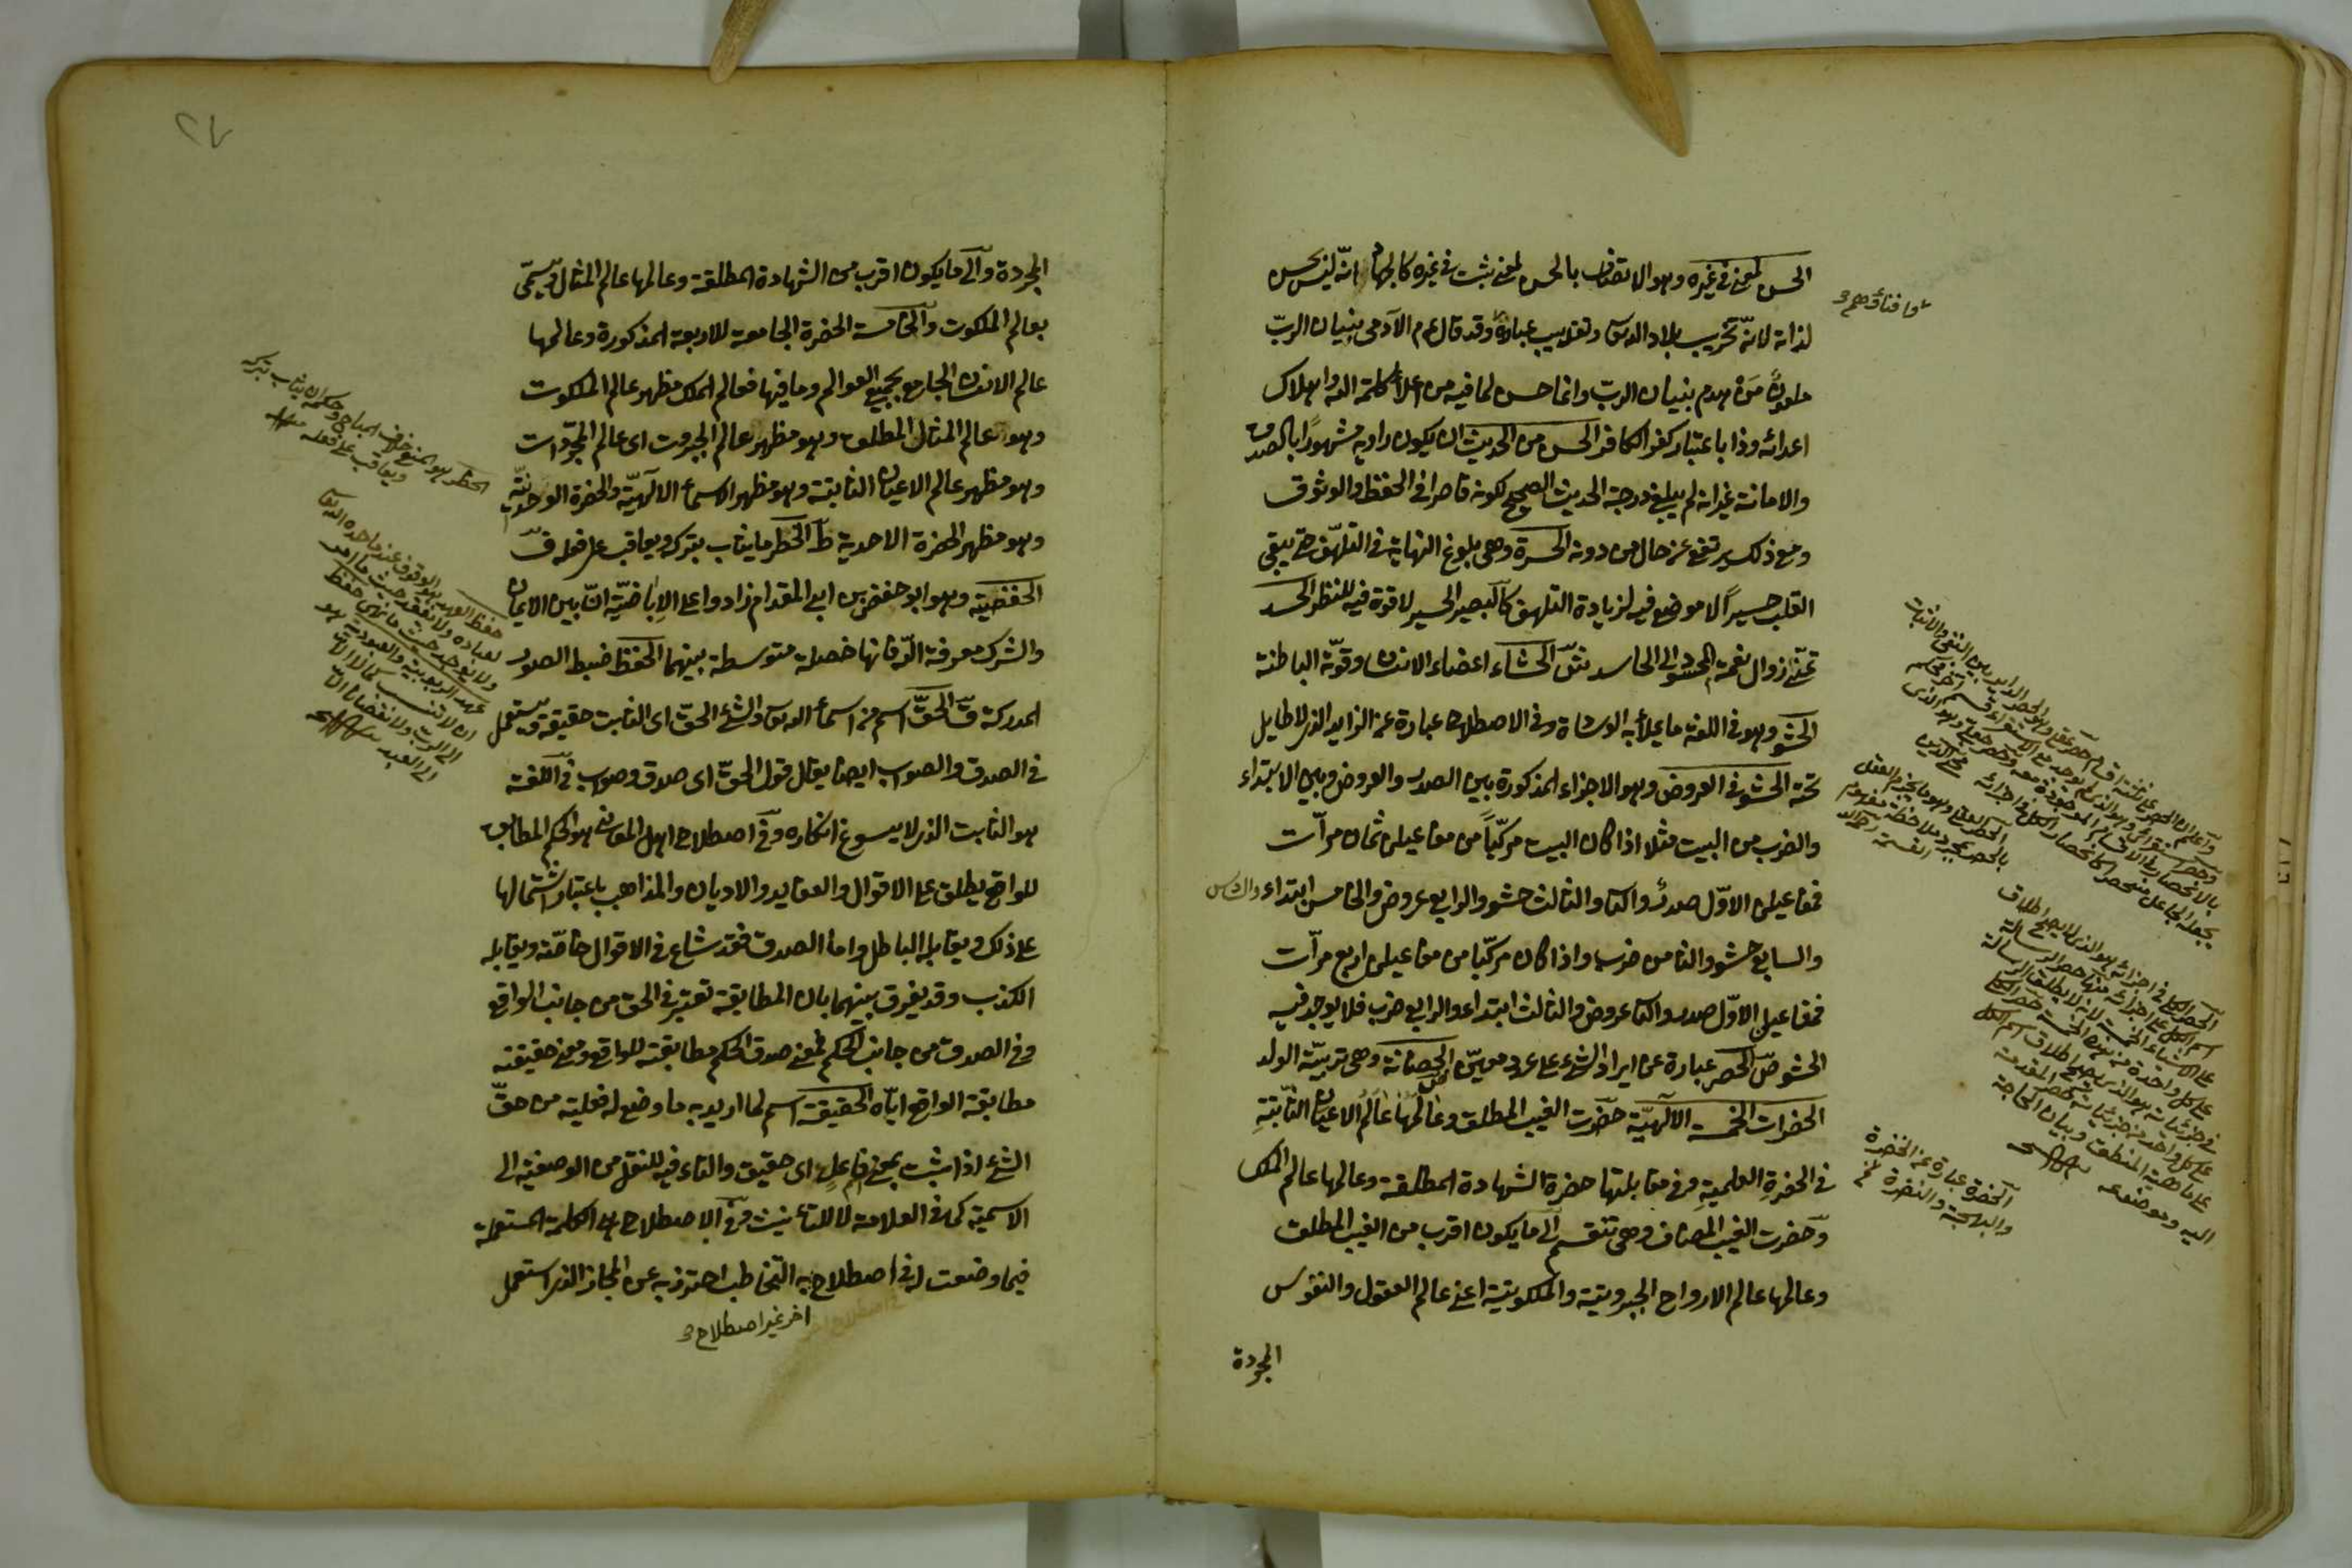 الحسن لمعنى في غيره وهو الاتصاف بالحسن لمعنى ثبت في غيره كالجهاد فانه ليس بحسن
لذاته لانه تخريب بلاد الله تعالى وتعذيب عباده وقد قال عم الآدمي بنيان الرب
ملعون من هدم بنيان الرب وانما حسن لما فيه من اعلاء كلمة الله واهلاك
اعدائه وذا باعتبار كفر الكافر الحسن من الحديث ان يكون راويه مشهورا بالصدق
والامانة غير انه لم يبلغ درجة الحديث الصحيح لكونه قاصرا في الحفظ والوثوق
ومع ذلك يرتفع عن حال من دونه الحسرة وهي بلوغ النهاية في التلهف حتى يبقى
القلب حسيرا لا موضع فيه لزيادة التلهف كالبصير الحسير لا قوة فيه للنظر الحسد
تمني زوال نعمة المحسود الى الحاسد الحشاء اعضاء الانسان وقوته الباطنة
الحشو وهو في اللغة ما يملأ به الوسادة وفي الاصطلاح عبارة عن الزايد الذي لا طايل
تحته الحشو في العروض وهو الاجزاء المذكورة بين الصدر والعروض وبين الابتداء
والضرب من البيت مثلا اذا كان البيت مركبا من مفاعيلن ثمان مرات
فمفاعيلن الاول صدر والثاني والثالث حشو والرابع عروض والخامس ابتداء والسادس
والسابع حشو والثامن ضرب واذا كان مركبا من مفاعيلن اربع مرات
فمفاعيلن الاول صدر والثاني عروض والثالث ابتداء والرابع ضرب فلا يوجد فيه
الحشو الحصر عبارة عن ايراد الشيء على عدد معين الحضانة وهي تربية الولد
الحضرات الخمسة الالهية حضرت الغيب المطلق وعالمها عالم الاعيان الثابتة
في الحضرة العلمية وفي مقابلتها حضرة الشهادة المطلقة وعالمها عالم الملك
وحضرت الغيب المضاف وهي تنقسم الى ما يكون اقرب من الغيب المطلق
وعالمها عالم الارواح الجبروتية والملكوتية اعني عالم العقول والنفوس
المجردة
الحصر الكل في اجزائه هو الذي لا يصح اطلاق
اسم الكل على اجزائه منها حصر الرسالة
على الاشياء الخمسة لانه لا يطلق الرسالة
على كل واحدة من هذه الخمسة حصر الكلي
في جزئياته هو الذي يصح اطلاق اسم الكلي
على كل واحد من جزئياته كحصر المقدمة
على ماهية المنطق وبيان الحاجة
اليه وموضوعه
الخضرة عبارة عن الخضرة
والبهجة والنضرة
٢٧
المجردة والى ما يكون اقرب من الشهادة المطلقة وعالمها عالم المثال ويسمى
بعالم الملكوت والخامسة الحضرة الجامعة للاربعة المذكورة وعالمها
عالم الانسان الجامع بجميع العوالم وما فيها فعالم الملك مظهر عالم الملكوت
وهو عالم المثال المطلق وهو مظهر عالم الجبروت اى عالم المجردات
وهو مظهر عالم الاعيان الثابتة وهو مظهر الاسماء الالهية والحضرة الواحدية
وهو مظهر الحضرة الاحدية الحظر ما يثاب بتركه ويعاقب على فعله
الحفصية وهو ابو حفص بن ابى المقدام زادوا على الاباضية ان بين الايمان
والشرك معرفة الله فانها خصلة متوسطة بينهما الحفظ ضبط الصور
المدركة الحق اسم من اسماء الله تعالى والشيء الحق اى الثابت حقيقة ويستعمل
في الصدق والصواب ايضا يقال قول الحق اى صدق وصواب في اللغة
هو الثابت الذي لا يسوغ انكاره وفي اصطلاح اهل المعاني هو الحكم المطابق
للواقع يطلق على الاقوال والعقايد والاديان والمذاهب باعتبار اشتمالها
على ذلك ويقابله الباطل واما الصدق فقد شاع في الاقوال خاصة ويقابله
الكذب وقد يفرق بينهما بان المطابقة تعتبر في الحق من جانب الواقع
وفي الصدق من جانب الحكم فمعنى صدق الحكم مطابقته للواقع ومعنى حقيقته
مطابقة الواقع اياه الحقيقة اسم لما اريد به ما وضع له فعيلة من حق
الشيء اذا ثبت بمعنى فاعل اى حقيق والتاء فيه للنقل من الوصفية الى
الاسمية كما في العلامة لا للتأنيث وفي الاصطلاح هي الكلمة المستعملة
فيما وضعت له في اصطلاح به التخاطب احترز به عن المجاز الذي استعمل
اخر غير اصطلاح
الحظر هو المنع خلاف المباح وحكمه ان يثاب بتركه
ويعاقب على فعله
حفظ العهد هو الوقوف عند ما حده الله تعالى
لعباده ولا يفقد حيث ما امر
ولا يوجد حيث ما نهى حفظ
عهد الربوبية والعبودية هو
ان لا تنسب كمالا الا
الى الرب ولا نقصانا الا
الى العبد